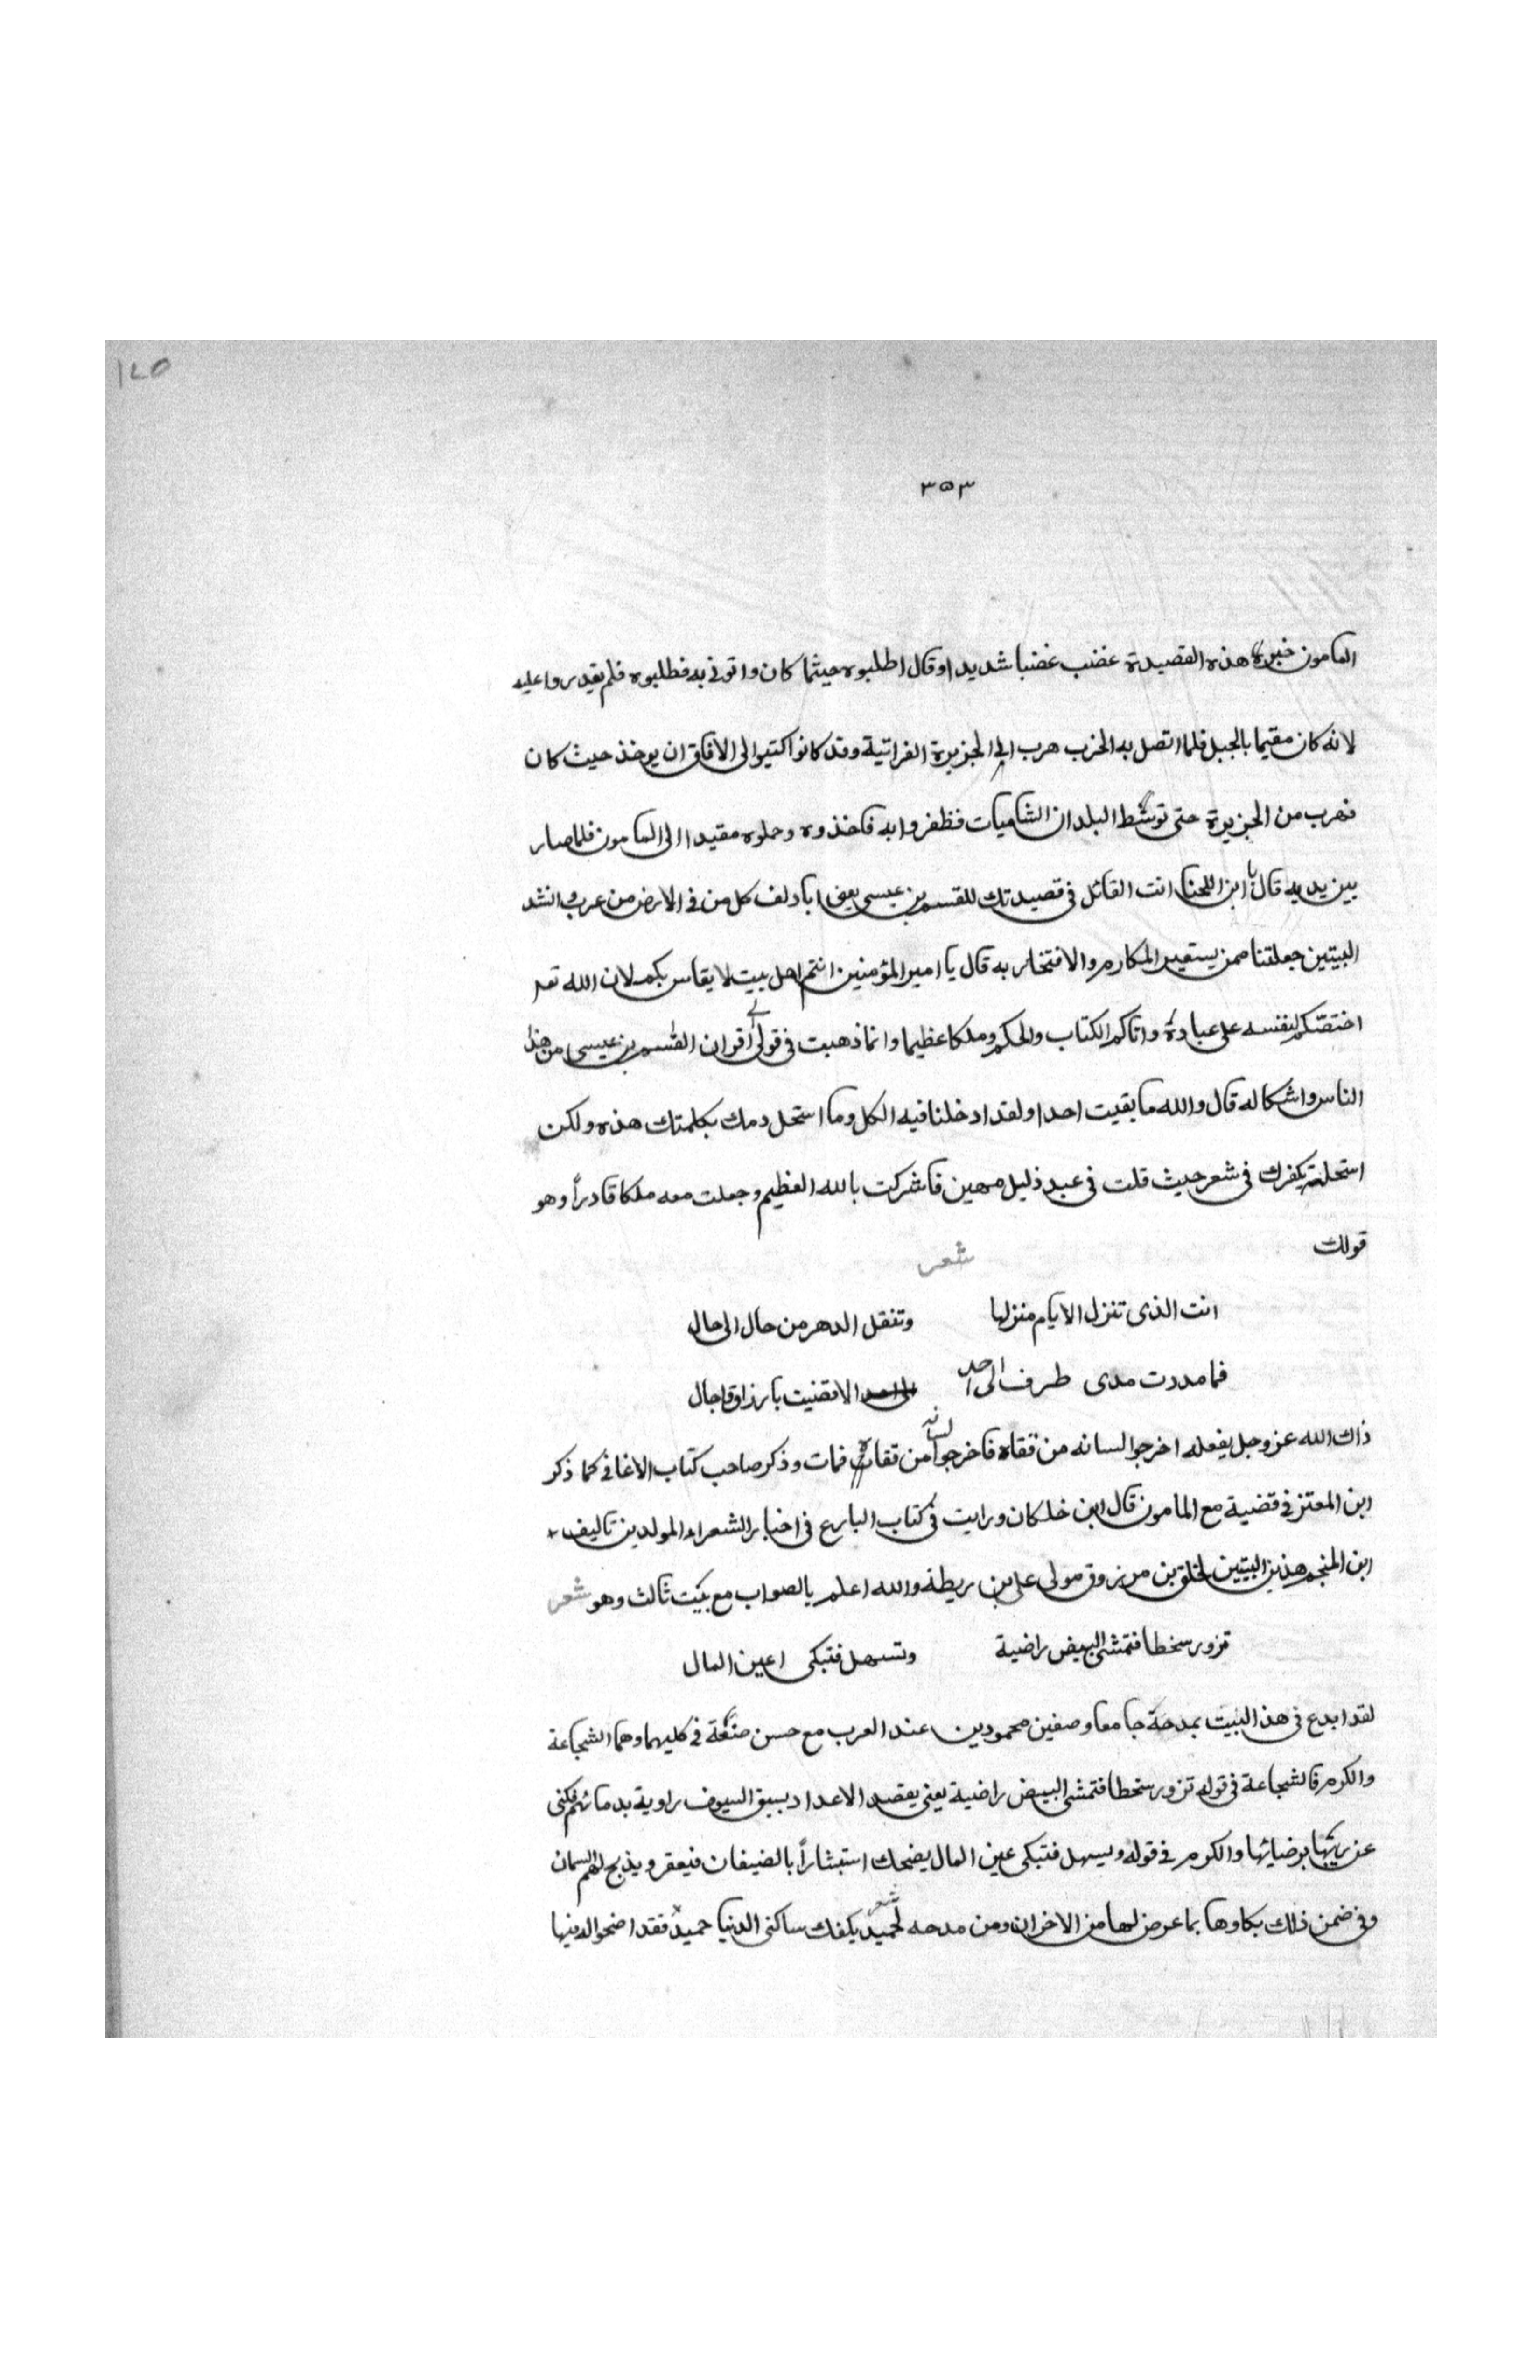 ١٢٥
٣٥٣
المامون خبر هذه القصيدة غضب غضبا شديدا وقال اطلبوه حيثما كان واتونى به فطلبوه فلم يقدروا عليه
لانه كان مقيما بالجبل فلما اتصل به الخبر هرب الى الجزيرة الفراتية وقد كانوا كتبوا الى الآفاق ان يوخذ حيث كان
فهرب من الجزيرة حتى توسط البلدان الشاميات فظفروا به فاخذوه وحملوه مقيدا الى المامون فلما صار
بين يديه قال يا ابن اللخنا انت القائل فى قصيدتك للقسم بن عيسى يعنى ابا دلف كل من فى الارض من عرب وانشد
البيتين جعلتنا ممن يستعير المكارم والافتخار به قال يا امير المؤمنين انتم اهل بيت لا يقاس بكم لان الله تعم
اختصكم لنفسه على عباده واتاكم الكتاب والحكم وملكا عظيما وانما ذهبت فى قولى الى اقران القسم بن عيسى من هذا
الناس واشكاله قال والله ما بقيت احدا ولقد ادخلنا فيه الكل وما استحل دمك بكلمتك هذه ولكن
استحلته بكفرك فى شعر حيث قلت فى عبد ذليل مهين فاشركت بالله العظيم وجعلت معه ملكا قادراً وهو
قولك شعر
انت الذى تنزل الايام منزلها وتنقل الدهر من حال الى حال
فما مددت مدى طرف الى احد الا قضيت بارزاق واجال
ذاك الله عز وجل يفعله اخرجوا لسانه من قفاه فاخرجوا لسانه من قفاه فمات وذكر صاحب كتاب الاغانى كما ذكر
ابن المعتز فى قضية مع المامون قال ابن خلكان ورايت فى كتاب البارع فى اخبار الشعراء المولدين تاليف
ابن المنجم هذين البيتين لخلق بن مرزوق مولى على بن ريطة والله اعلم بالصواب مع بيت ثالث وهو شعر
تزور سخطا فتمشى البيض راضية وتسهل فتبكى اعين المال
لقد ابدع فى هذ البيت بمدحة جامعا وصفين محمودين عند العرب مع حسن صنعة فى كليهما وهما الشجاعة
والكرم فالشجاعة فى قوله تزور سخطا فتمشى البيض راضية يعنى يقصد الاعداد بسبق السيوف راوية بدمائهم فكنى
عن ريها برضيائها والكرم فى قوله ويسهل فتبكى عين المال يضحك استبشاراً بالضيفان فيعقر ويذبح لهم السمان
وفى ضمن ذلك بكاوها بما عرض لها من الاخزان ومن مدحه لحميد شعر يكفك ساكنى الدنيا حميد فقد اضحوا له فيها